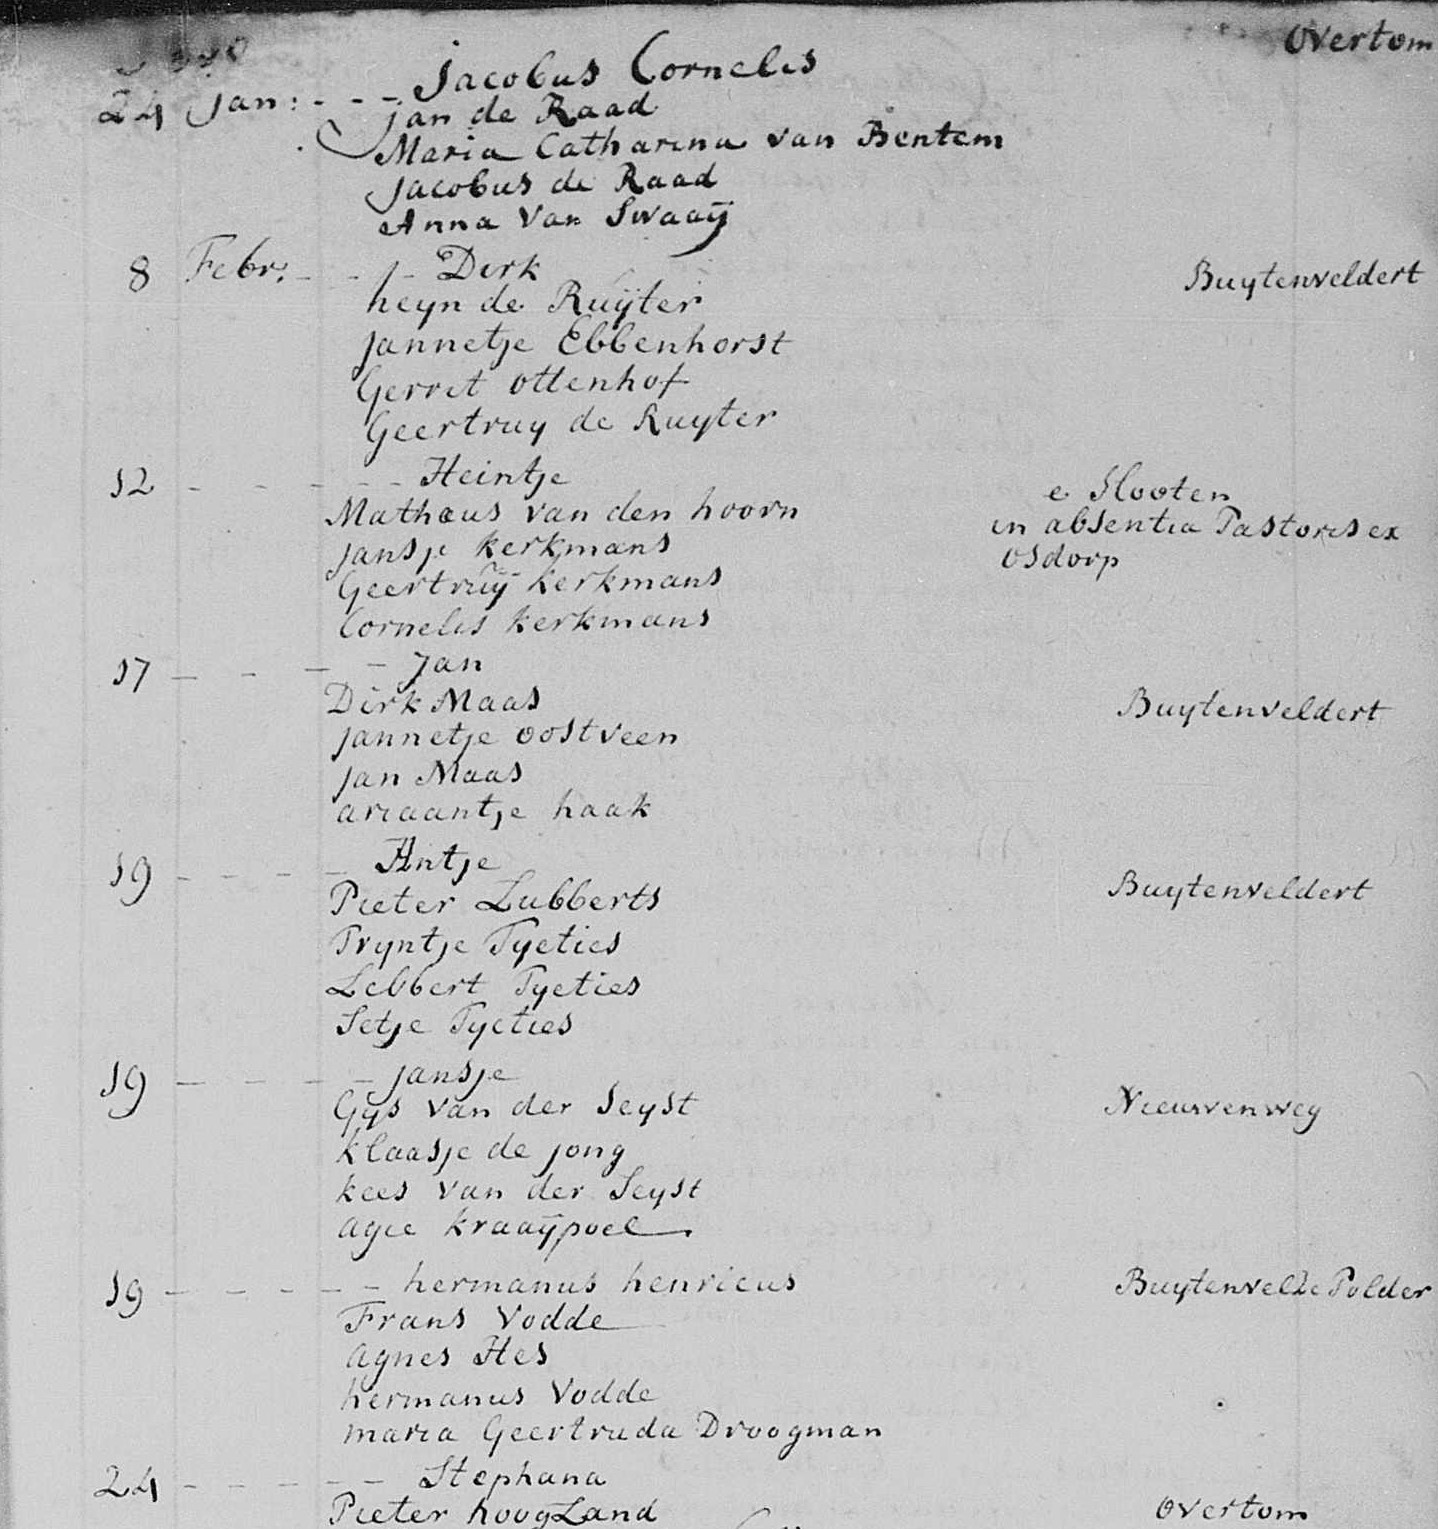 Overtom
24 Jan: - - - Jacobus Cornelis
Jan de Raad
Maria Catharina van Bentem
Jacobus de Raad
Anna Van Swaaÿ
8 Febr. - - - Dirk
Buytenveldert
heyn de Ruÿter
Jannetje Ebbenhorst
Gerrit Ottenhof
Geertruy de Ruyter
12 - - - - - Heintje
e Slooten
Mathæus van den hoorn
in absentia Pastoris ex
Jansje kerkmans
Osdorp
Geertruÿ kerkmans
Cornelis kerkmans
17 - - - - Jan
Dirk Maas
Buytenveldert
Jannetje Oostveen
Jan Maas
ariaantje haak
19 - - - - - Antje
Pieter Lubberts
Buytenveldert
Tryntje Tyeties
Lebbert Tyeties
Setje Tyeties
19 - - - - - Jansje
Gÿs van der Seyst
Nieuwenweg
klaasje de jong
kees van der Seyst
agie kraaÿpoel
19 - - - - - - hermanus henricus
Buytenvelde Polder
Frans Vodde
Agnes Hes
hermanus Vodde
maria Geertruda Droogman
24 - - - - - - Stephana
Pieter hoogLand
Overtom